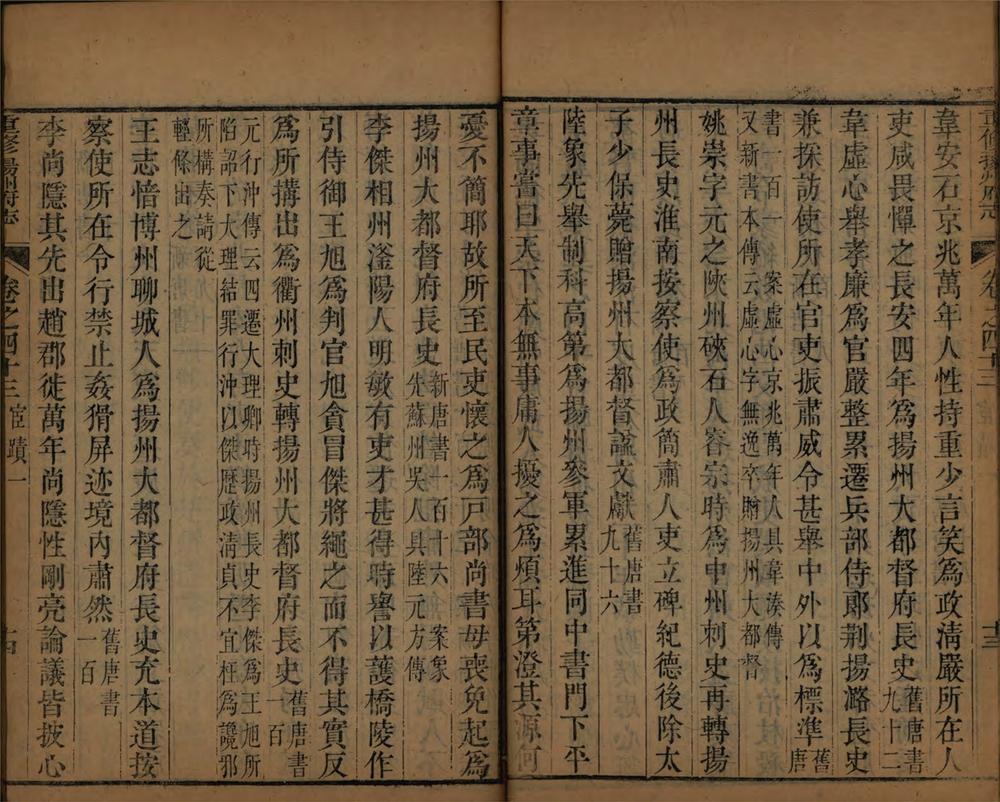 重修揚州府志
卷之四十三
十三
韋安石京兆萬年人性持重少言笑爲政淸嚴所在人
吏咸畏憚之長安四年爲揚州大都督府長史舊唐書九十二
韋虛心舉孝廉爲官嚴整累遷兵部侍郞荆揚潞長史
兼採訪使所在官吏振肅威令甚舉中外以爲標準舊唐
書一百一 案虛心京兆萬年人具韋湊傳
又新書本傳云虛心字無逸卒贈揚州大都督
姚崇字元之陜州硤石人睿宗時爲申州刺史再轉揚
州長史淮南按察使爲政簡肅人吏立碑紀德後除太
子少保薨贈揚州大都督謚文獻舊唐書九十六
陸象先舉制科高第爲揚州參軍累進同中書門下平
章事嘗曰天下本無事庸人擾之爲煩耳第澄其源何
憂不簡耶故所至民吏懷之爲戸部尚書母喪免起爲
揚州大都督府長史新唐書一百十六 案象先蘇州吳人具陸元方傳
李傑相州滏陽人明敏有吏才甚得時譽以護橋陵作
引侍御王旭爲判官旭貪冒傑將繩之而不得其實反
爲所搆出爲衢州刺史轉揚州大都督府長史舊唐書一百
元行沖傳云四遷大理卿時揚州長史李傑爲王旭所
陷詔下大理結罪行沖以傑歷政淸貞不宜枉爲讒邪
所構奏請從
輕條出之
王志愔博州聊城人爲揚州大都督府長史充本道按
察使所在令行禁止姦猾屏迹境内肅然舊唐書一百
李尚隱其先出趙郡徙萬年尚隱性剛亮論議皆披心
重修揚州府志
卷之四十三 宦蹟一
十四